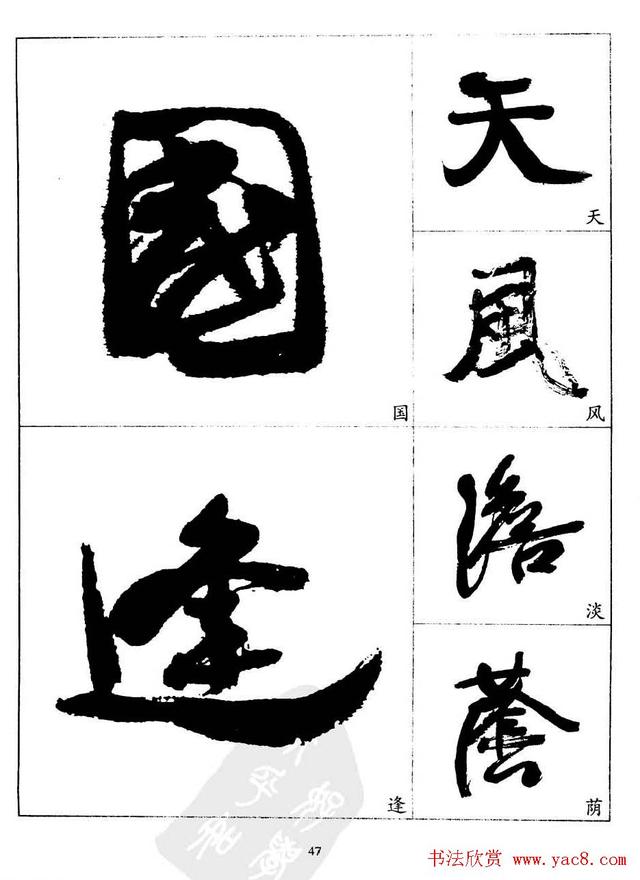 國
国
逢
逢
天
天
風
风
澹
淡
蔭
荫
47
书法欣赏 www.yac8.com